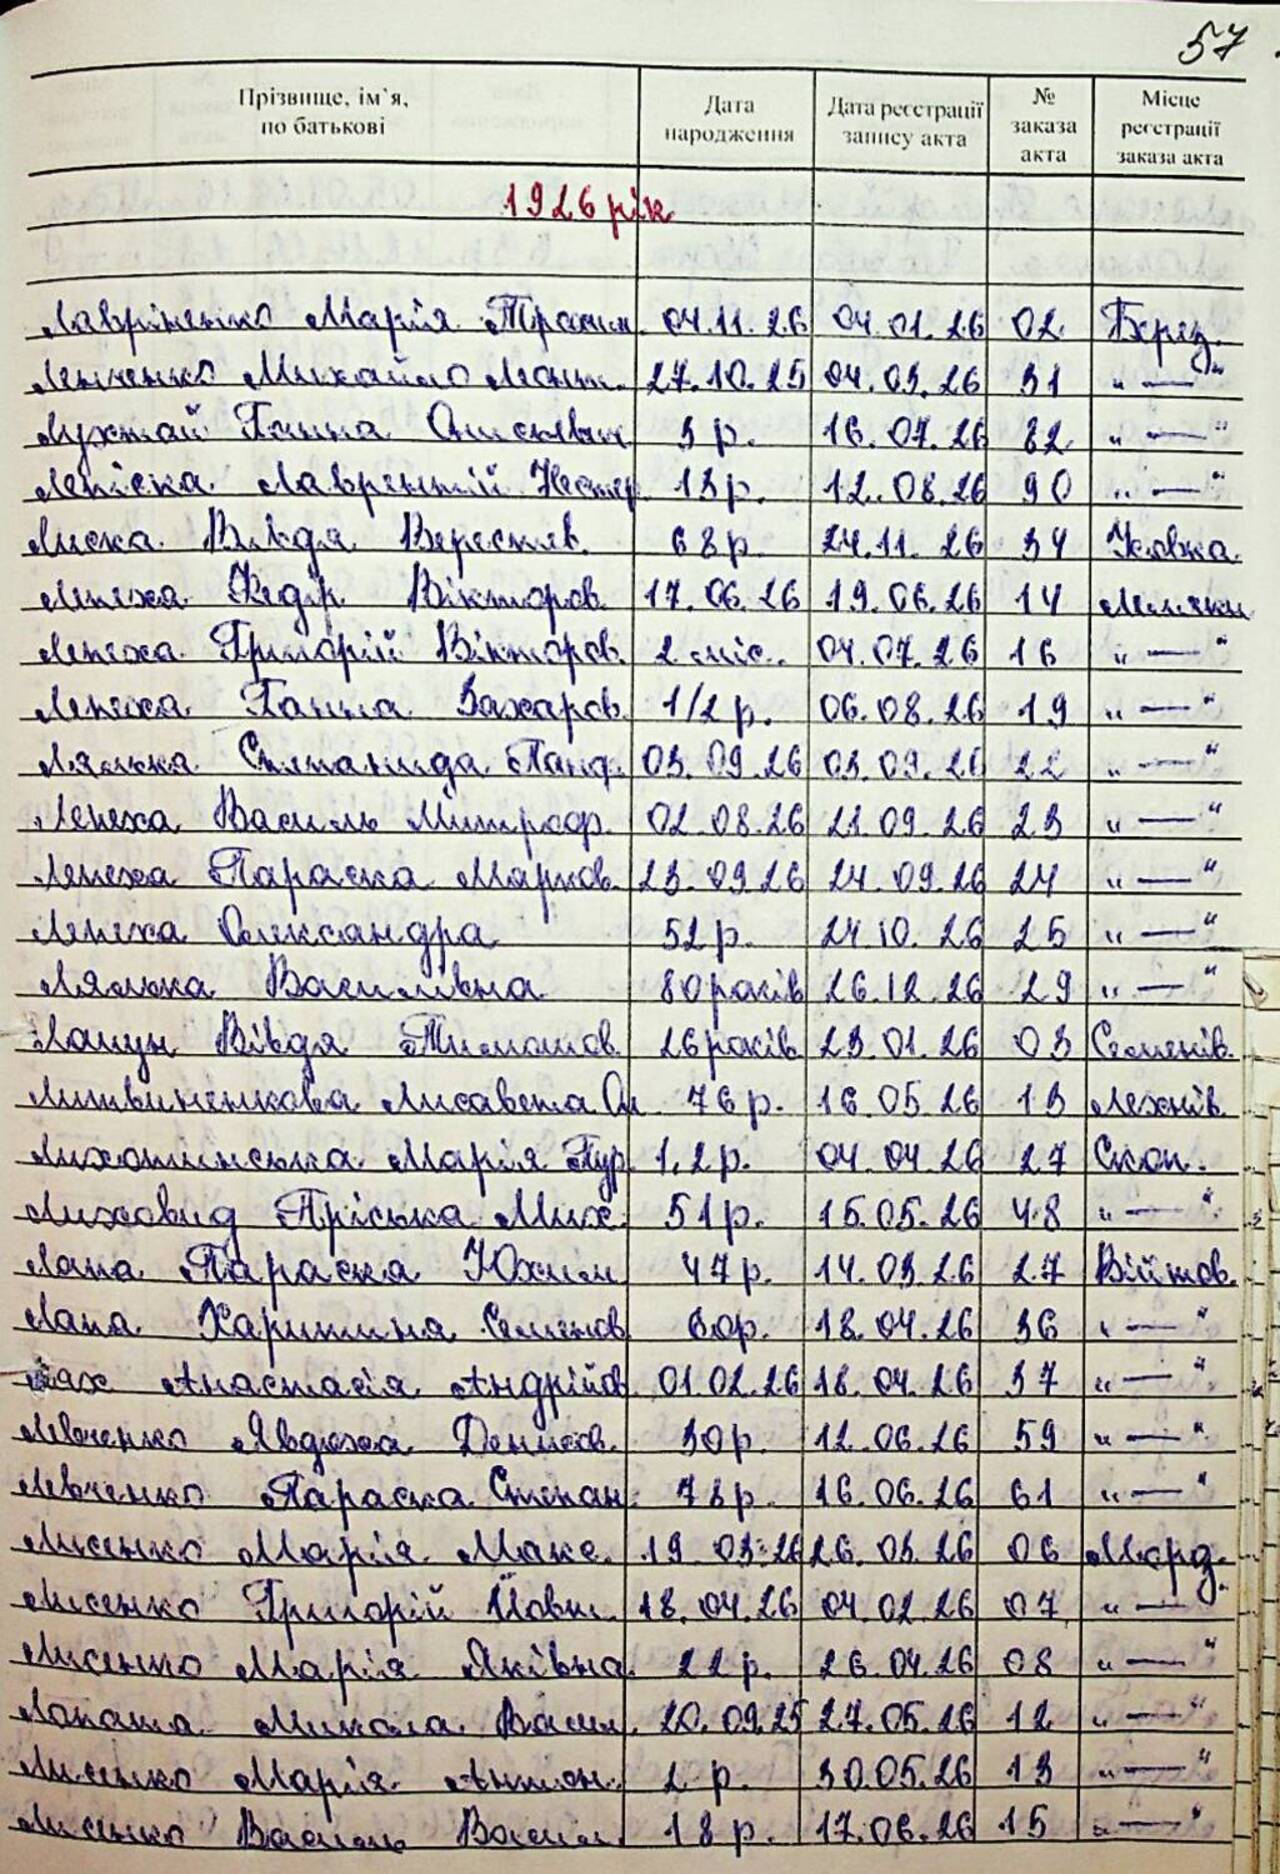 57
Прізвище, ім`я, по батькові Дата народження Дата реєстрації запису акта № заказа акта Місце реєстрації заказа акта
1926 рік
Лавріненко Марія Трохим 04.11.26 04.01.26 02 Берез.
Михайло 27.10.25 04.03.26 31 "—"
Ганна 3 р. 16.07.26 82 "—"
Лаврентій Нестер 13 р. 12.08.26 90 "—"
Лиска 68 р. 24.11.26 34
Лепеха Федір Вікторов. 17.06.26 19.06.26 14 Лемляки
Лепеха Григорій Вікторов. 2 міс. 04.07.26 16 "—"
Лепеха Ганна Захаров. 1/2 р. 06.08.26 19 "—"
Лялька Степанида Панф. 03.09.26 03.09.26 22 "—"
Лепеха Василь Митроф. 02.08.26 21.09.26 23 "—"
Лепеха Параска Марков. 23.09.26 24.09.26 24 "—"
Лепеха Олександра 52 р. 24.10.26 25 "—"
Лялька Василівна 80 років 26.12.26 29 "—"
Вівдя Тимошов. 26 років 23.01.26 03 Семенів.
Литвиненкова Лисавета 76 р. 16.05.26 13 Лехнів.
Марія 1,2 р. 04.04.26 27 Скоп.
Лиховид Пріська Мих. 51 р. 15.05.26 48 "—"
Лапа Параска Юхим 47 р. 14.03.26 27 Війтов.
Лапа Харитина Семенов 60р. 18.04.26 36 "—"
Лях Анастасія Андрійов 01.02.26 18.04.26 37 "—"
Левченко Явдоха Денисов. 30 р. 12.06.26 59 "—"
Левченко Параска Степан. 78 р. 16.06.26 61 "—"
Лисенко Марія Макс. 19.03.26 26.03.26 06
Лисенко Григорій Йовт. 18.04.26 04.02.26 07 "—"
Лисенко Марія Яківна 22 р. 26.04.26 08 "—"
Лопата Микола Васил. 20.09.25 27.05.26 12 "—"
Лисенко Марія Антон. 2 р. 30.05.26 13 "—"
Лисенко Василь Васил. 18 р. 17.06.26 15 "—"